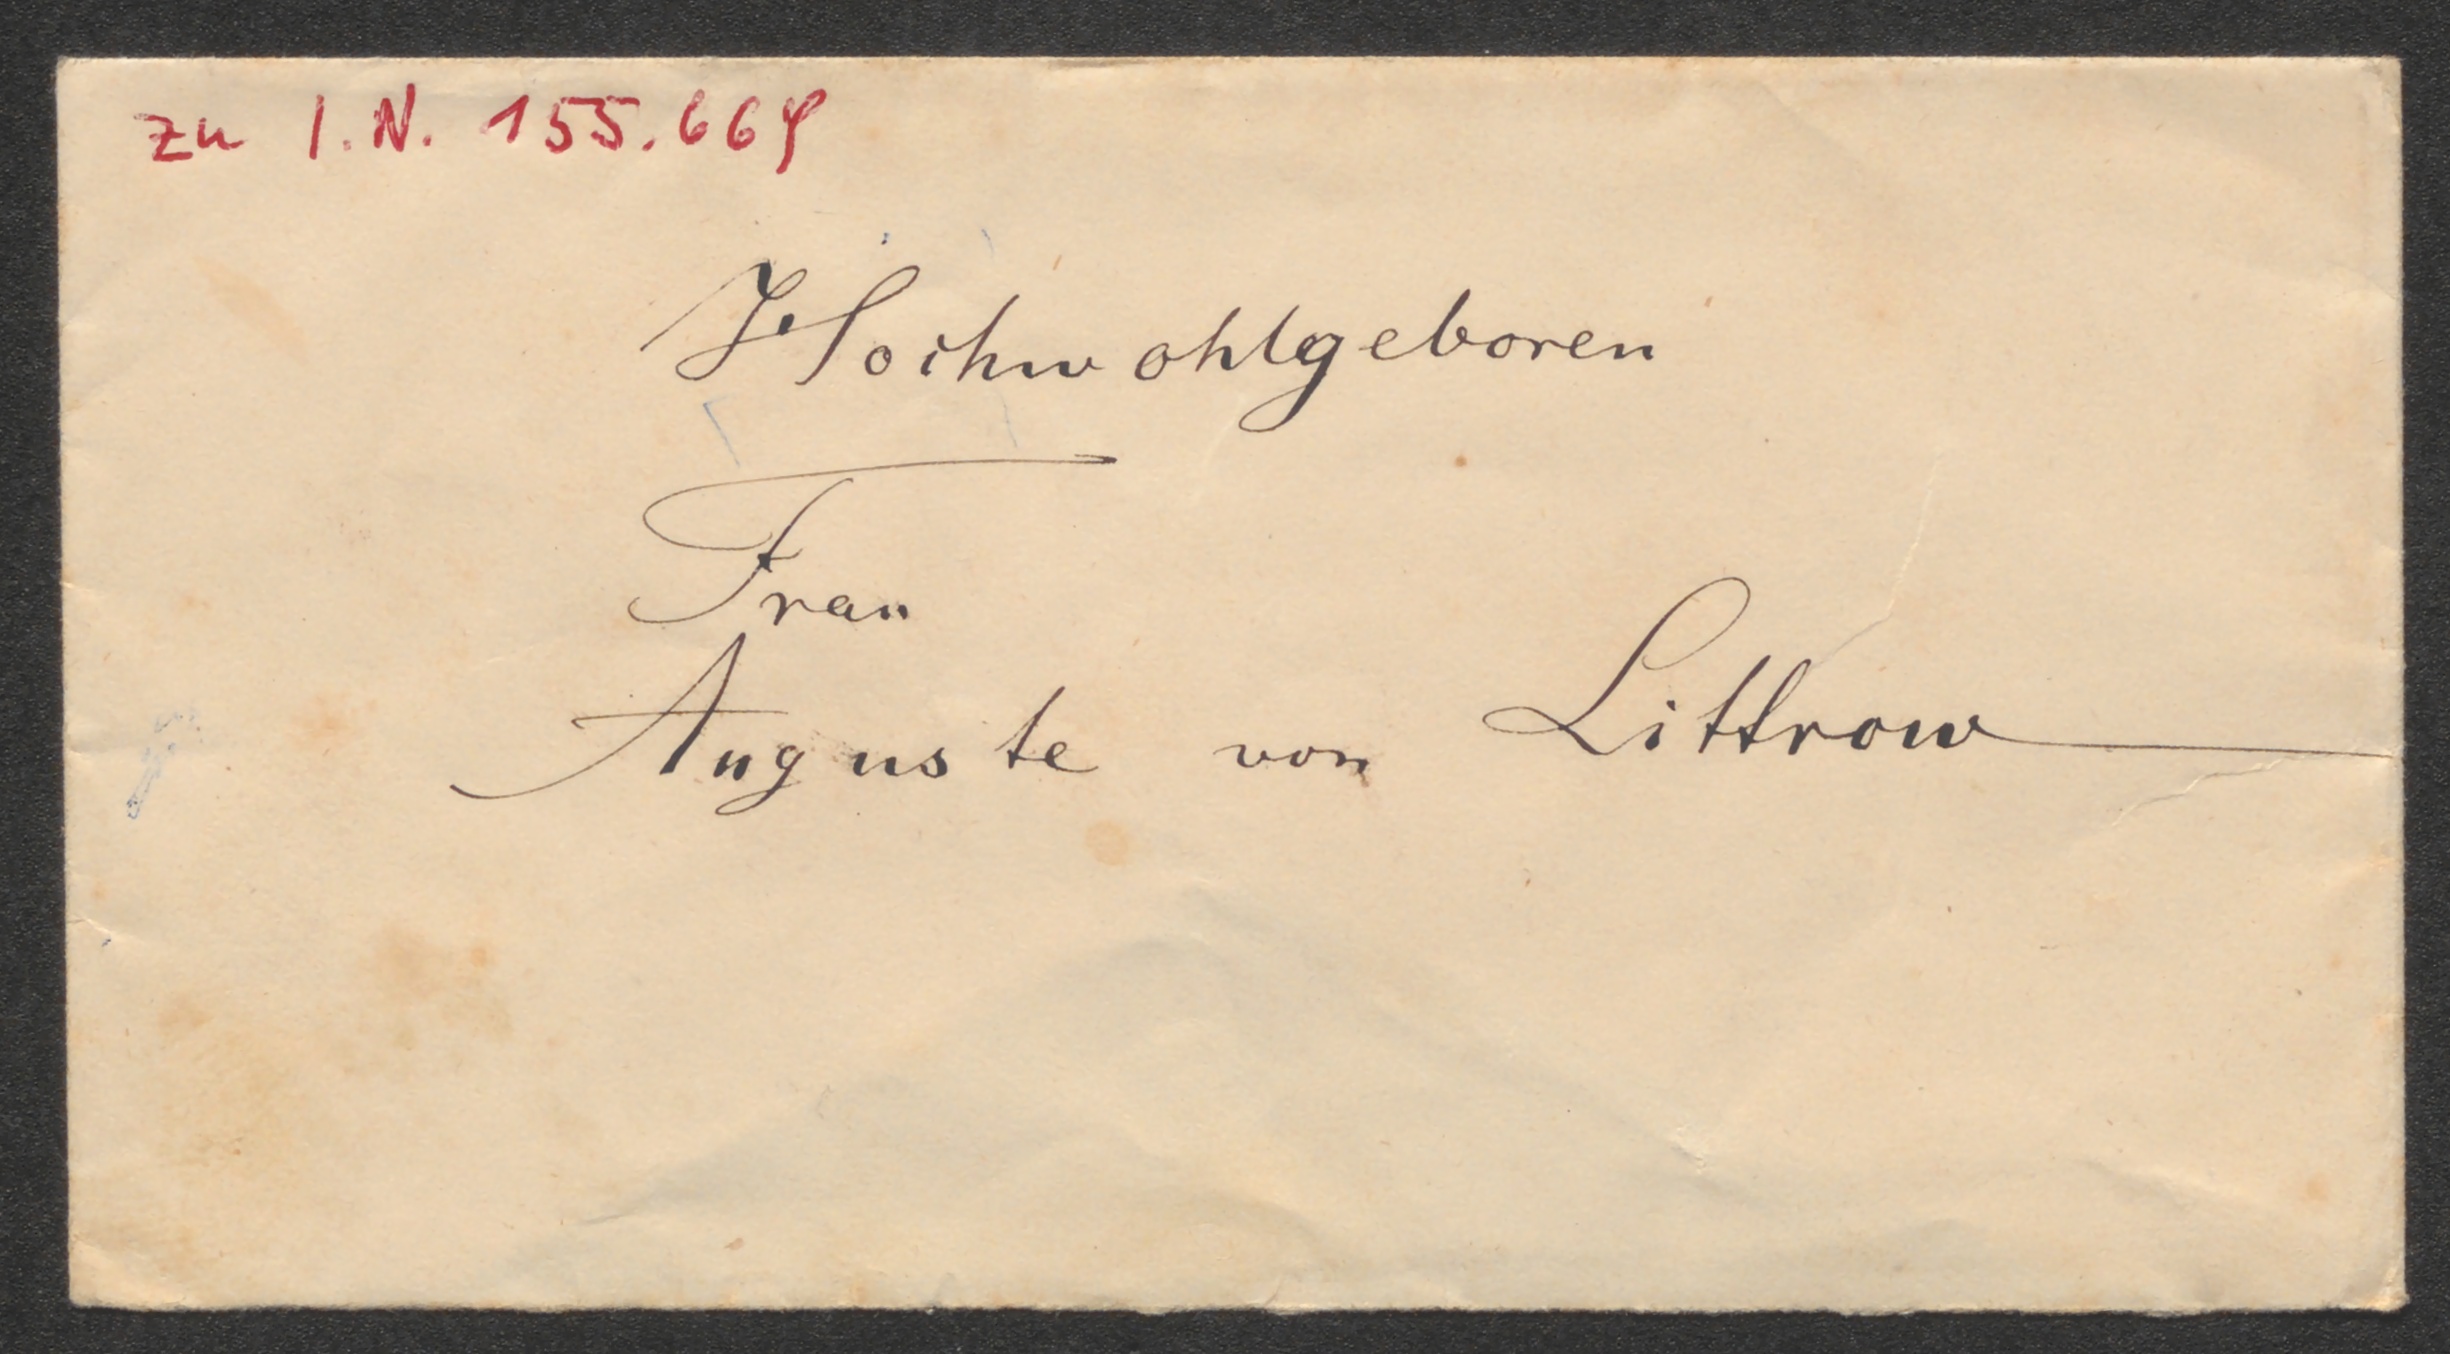 zu I.N. 155.669
Hochwohlgeboren
Frau
Auguste von Littrow